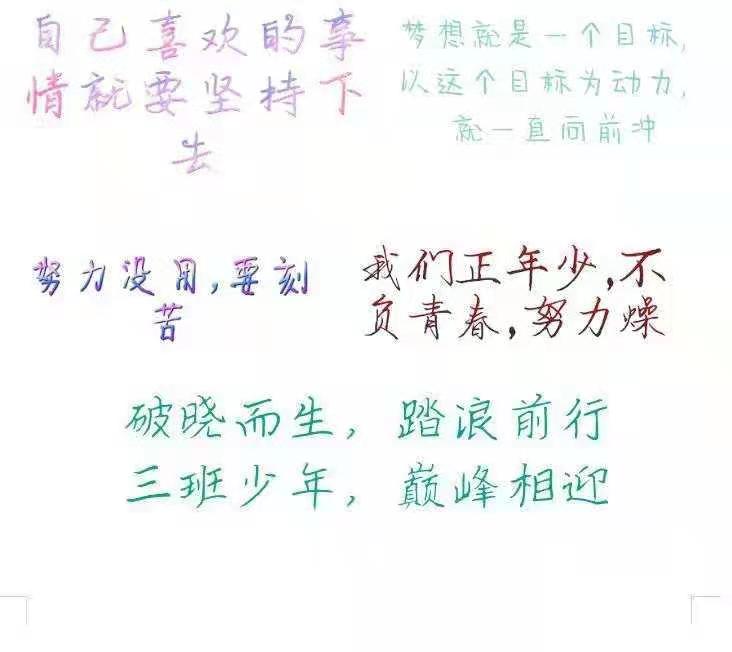 自己喜欢的事
情就要坚持下
去
梦想就是一个目标,
以这个目标为动力,
就一直向前冲
努力没用,要刻
苦
我们正年少,不
负青春,努力燥
破晓而生，踏浪前行
三班少年，巅峰相迎